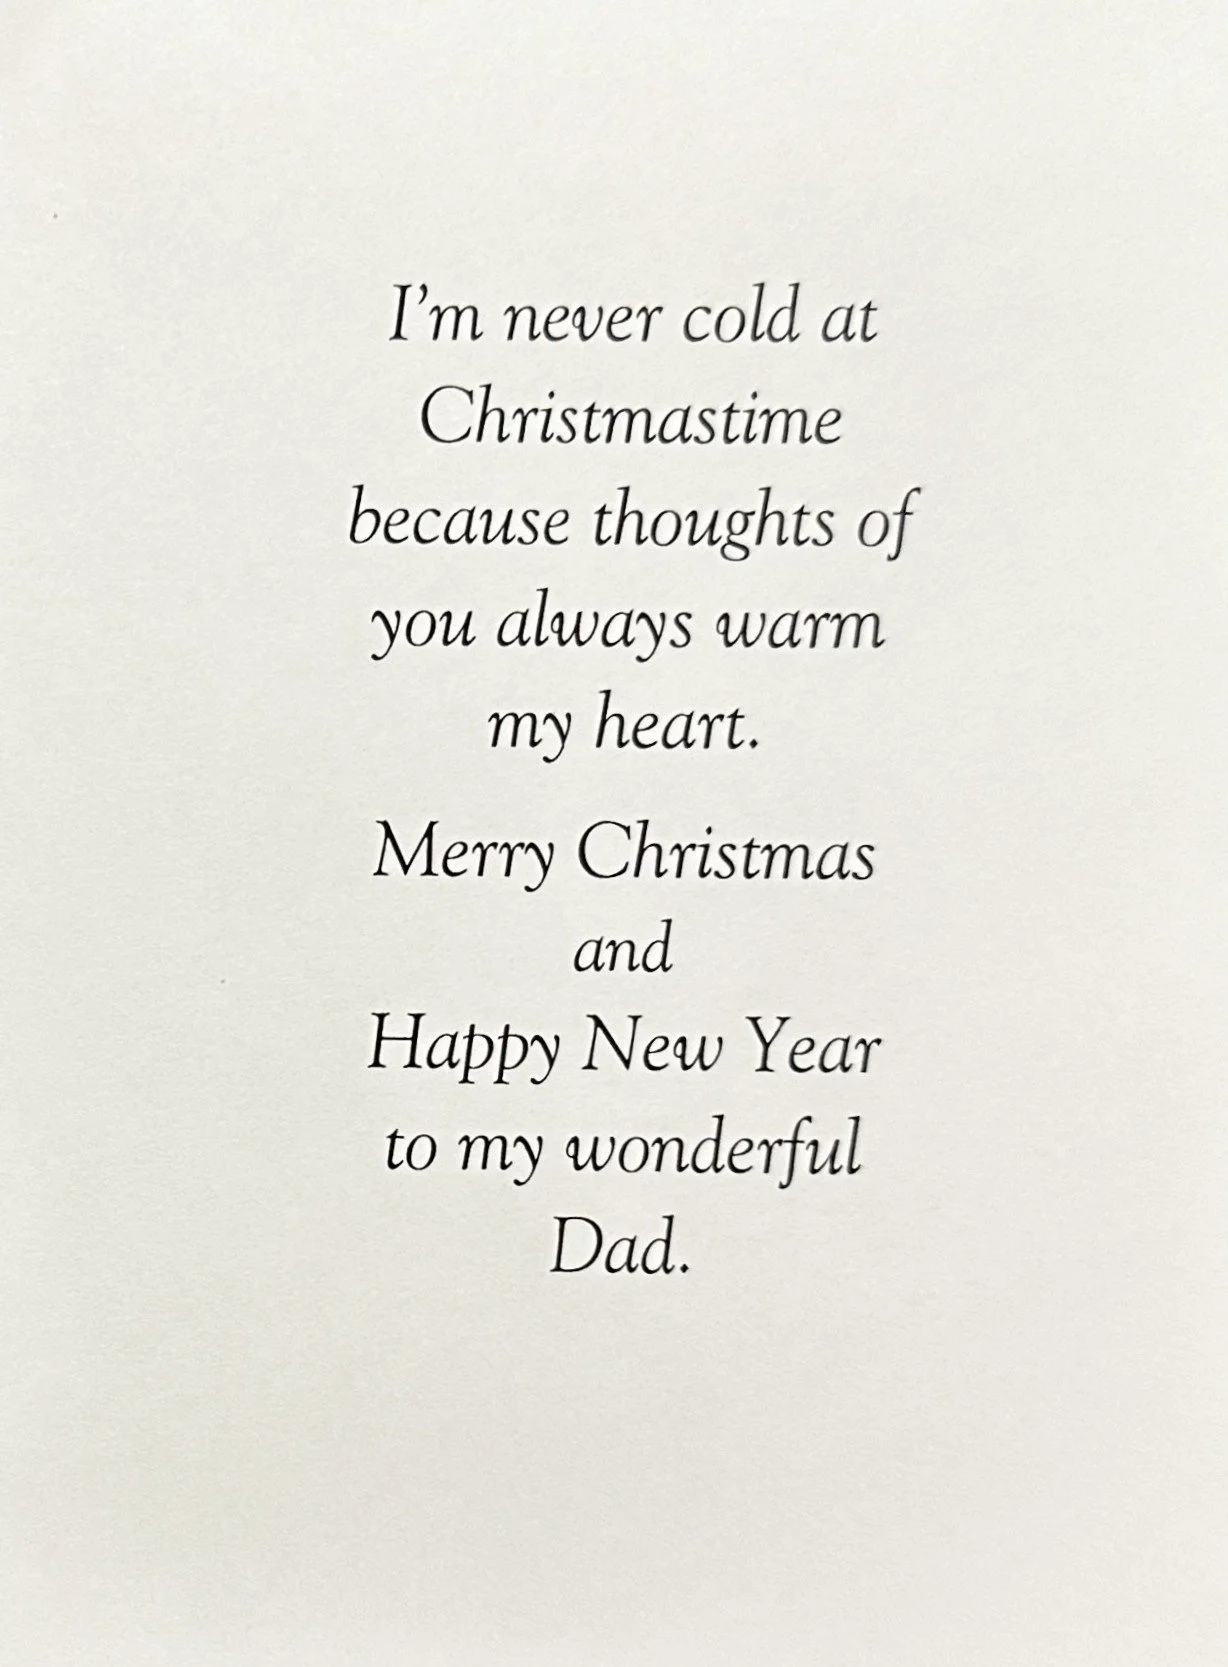 I’m never cold at
Christmastime
because thoughts of
you always warm
my heart.
Merry Christmas
and
Happy New Year
to my wonderful
Dad.